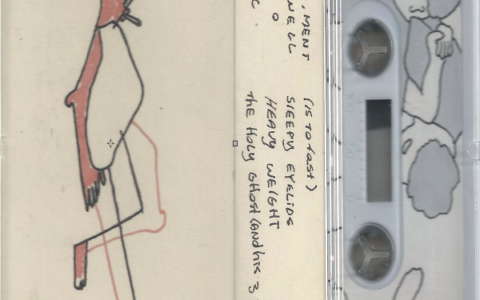 MENT
NELL
(IS TO fast)
SLEEPY EYELIDS
HEAVY WEIGHT
THE HOLY GHOST (AND HIS 3